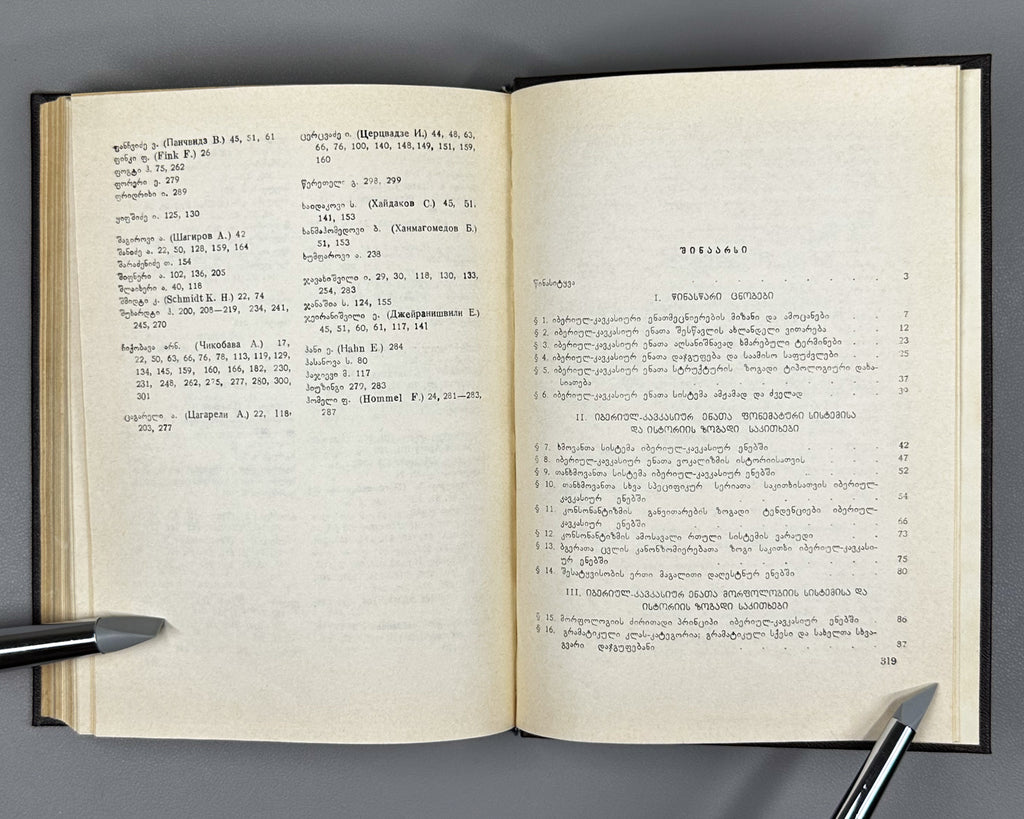 ფანჩვიძე ვ. (Панчвидз В.) 45, 51, 61
ფინკი ფ. (Fink F.) 26
ფოგტი ჰ. 75, 262
ფორერი ე. 279
ფრიდრიხი ი. 289
ყიფშიძე ი. 125, 130
შაგიროვი ა. (Шагиров А.) 42
შანიძე ა. 22, 50, 128, 159, 164
შარაძენიძე თ. 154
შიფნერი ა. 102, 136, 205
შლაიხერი ა. 40, 118
შმიდტი კ. (Schmidt K. H.) 22, 74
შუხარდტი ჰ. 200, 208—219, 234, 241,
245, 270
ჩიქობავა არნ. (Чикобава А.) 17,
22, 50, 63, 66, 76, 78, 113, 119, 129,
134, 145, 159, 160, 166, 182, 230,
231, 248, 262, 275, 277, 280, 300,
301
ცაგარელი ა. (Цагарели А.) 22, 118,
203, 277
ცერცვაძე ი. (Церцвадзе И.) 44, 48, 63,
66, 76, 100, 140, 148, 149, 151, 159,
160
წერეთელი გ. 298, 299
ხაიდაკოვი ს. (Хайдаков С.) 45, 51,
141, 153
ხანმაჰომედოვი ბ. (Ханмагомедов Б.)
51, 153
ხუმფაროვი ა. 238
ჯავახიშვილი ი. 29, 30, 118, 130, 133,
254, 283
ჯანაშია ს. 124, 155
ჯეირანიშვილი ე. (Джейранишвили Е.)
45, 51, 60, 61, 117, 141
ჰანი ე. (Hahn E.) 284
ჰასანოვა ს. 80
ჰაჯიევი მ. 117
ჰიუზინგი 279, 283
ჰომელი ფ. (Hommel F.) 24, 281—283,
287
შინაარსი
წინასიტყვა . . . . 3
I. წინასწარი ცნობები
§ 1. იბერიულ-კავკასიური ენათმეცნიერების მიზანი და ამოცანები . 7
§ 2. იბერიულ-კავკასიურ ენათა შესწავლის ახლანდელი ვითარება . 12
§ 3. იბერიულ-კავკასიურ ენათა აღსანიშნავად ხმარებული ტერმინები . 23
§ 4. იბერიულ-კავკასიურ ენათა დაჯგუფება და საამისო საფუძვლები . 25
§ 5. იბერიულ-კავკასიურ ენათა სტრუქტურის ზოგადი ტიპოლოგიური დახა-
სიათება . . . . . . . 37
§ 6. იბერიულ-კავკასიურ ენათა სისტემა ამჟამად და ძველად . . 39
II. იბერიულ-კავკასიურ ენათა ფონემატური სისტემისა
და ისტორიის ზოგადი საკითხები
§ 7. ხმოვანთა სისტემა იბერიულ-კავკასიურ ენებში . . 42
§ 8. იბერიულ-კავკასიურ ენათა ვოკალიზმის ისტორიისათვის . . 47
§ 9. თანხმოვანთა სისტემა იბერიულ-კავკასიურ ენებში . . . 52
§ 10. თანხმოვანთა სხვა სპეციფიკურ სერიათა საკითხისათვის იბერიულ-
კავკასიურ ენებში . . . . . 54
§ 11. კონსონანტიზმის განვითარების ზოგადი ტენდენციები იბერიულ-
კავკასიურ ენებში . . . . . 66
§ 12. კონსონანტიზმის ამოსავალი რთული სისტემის ვარაუდი . . 73
§ 13. ბგერათა ცვლის კანონზომიერებათა ზოგი საკითხი იბერიულ-კავკასი-
ურ ენებში . . . . . . 75
§ 14. შესატყვისობის ერთი მაგალითი დაღესტნურ ენებში . . 80
III. იბერიულ-კავკასიურ ენათა მორფოლოგიის სისტემისა და
ისტორიის ზოგადი საკითხები
§ 15. მორფოლოგიის ძირითადი პრინციპი იბერიულ-კავკასიურ ენებში . 86
§ 16. გრამატიკული კლას-კატეგორია; გრამატიკული სქესი და სახელთა სხვა-
გვარი დაჯგუფებანი . . . . . . 87
319